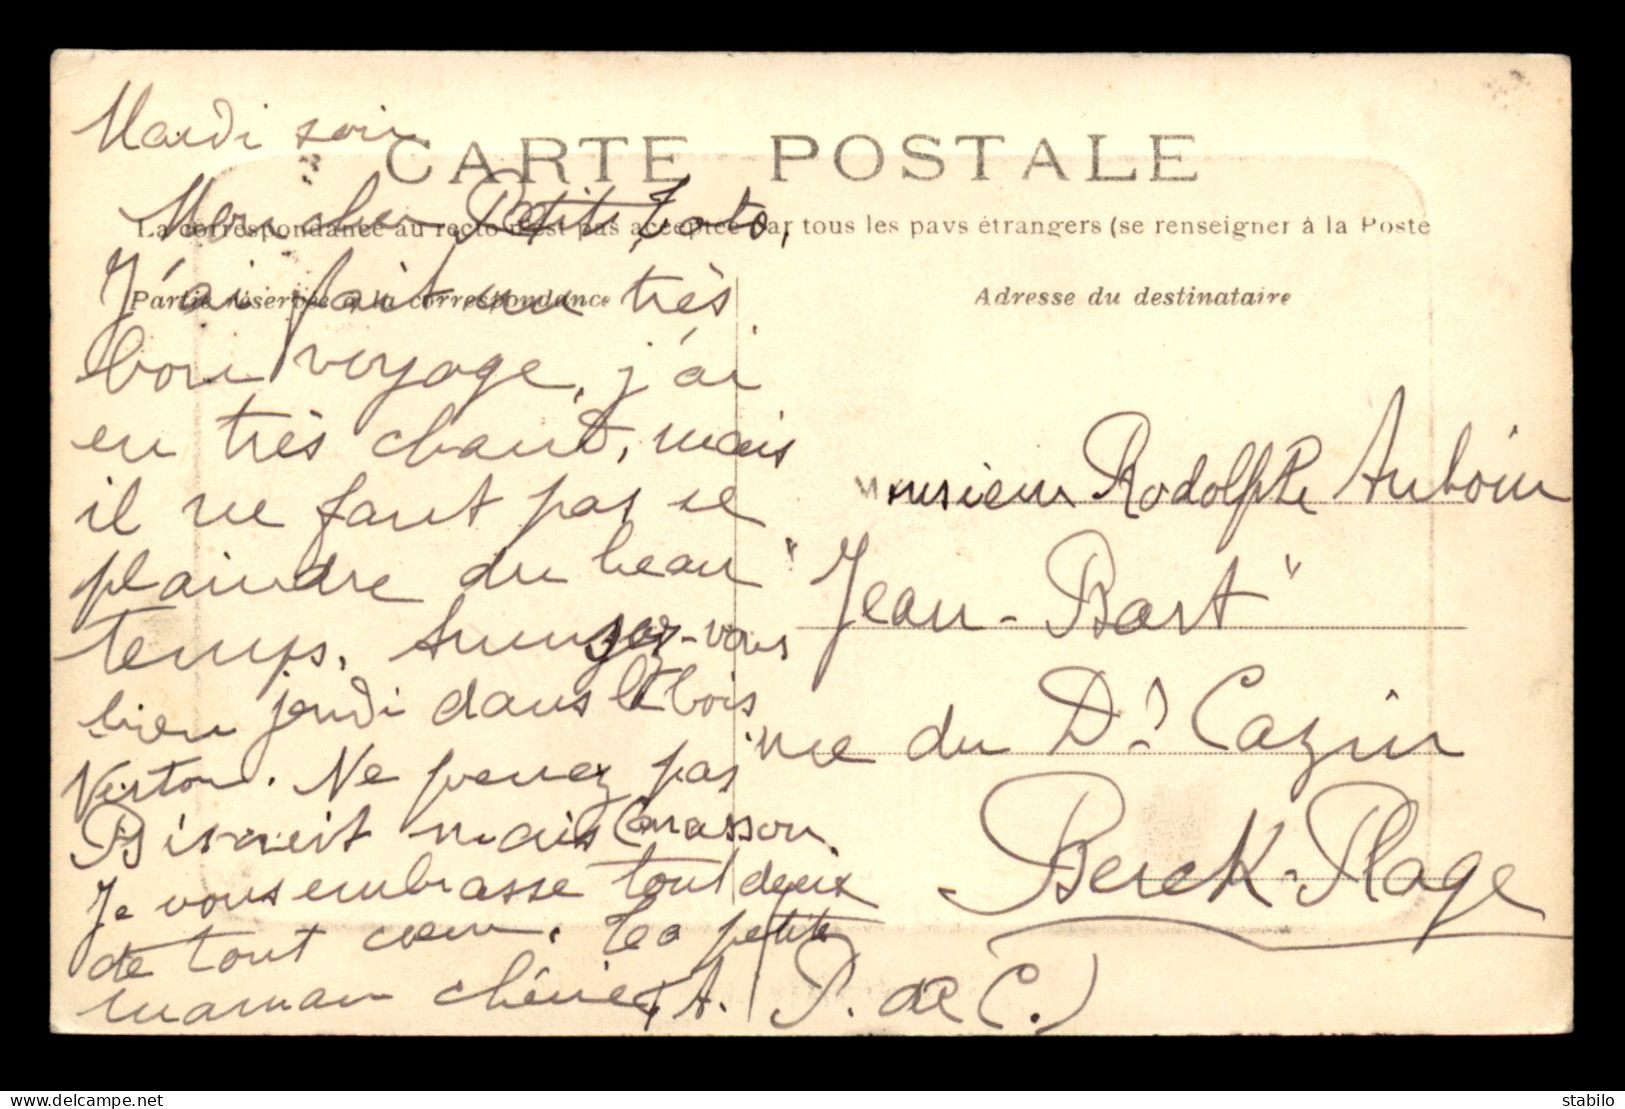 Mardi soir
CARTE POSTALE
Mon cher Petit Toto,
La correspondance au recto n'est pas acceptée par tous les pays étrangers (se renseigner à la Poste
J'ai fait un très
Partie réservée à la correspondance
bon voyage, j'ai
eu très chaud, mais
il ne faut pas se
plaindre du beau
temps. Amusez-vous
bien jeudi dans le bois
Verton. Ne prenez pas
Biscuit mais
Je vous embrasse tout deux
de tout cœur. Ta petite
maman chérie, A.
Adresse du destinataire
Monsieur Rodolphe Auboin
"Jean-Bart"
rue du Dr Cazin
Berck-Plage
P. de C.)
stabilo